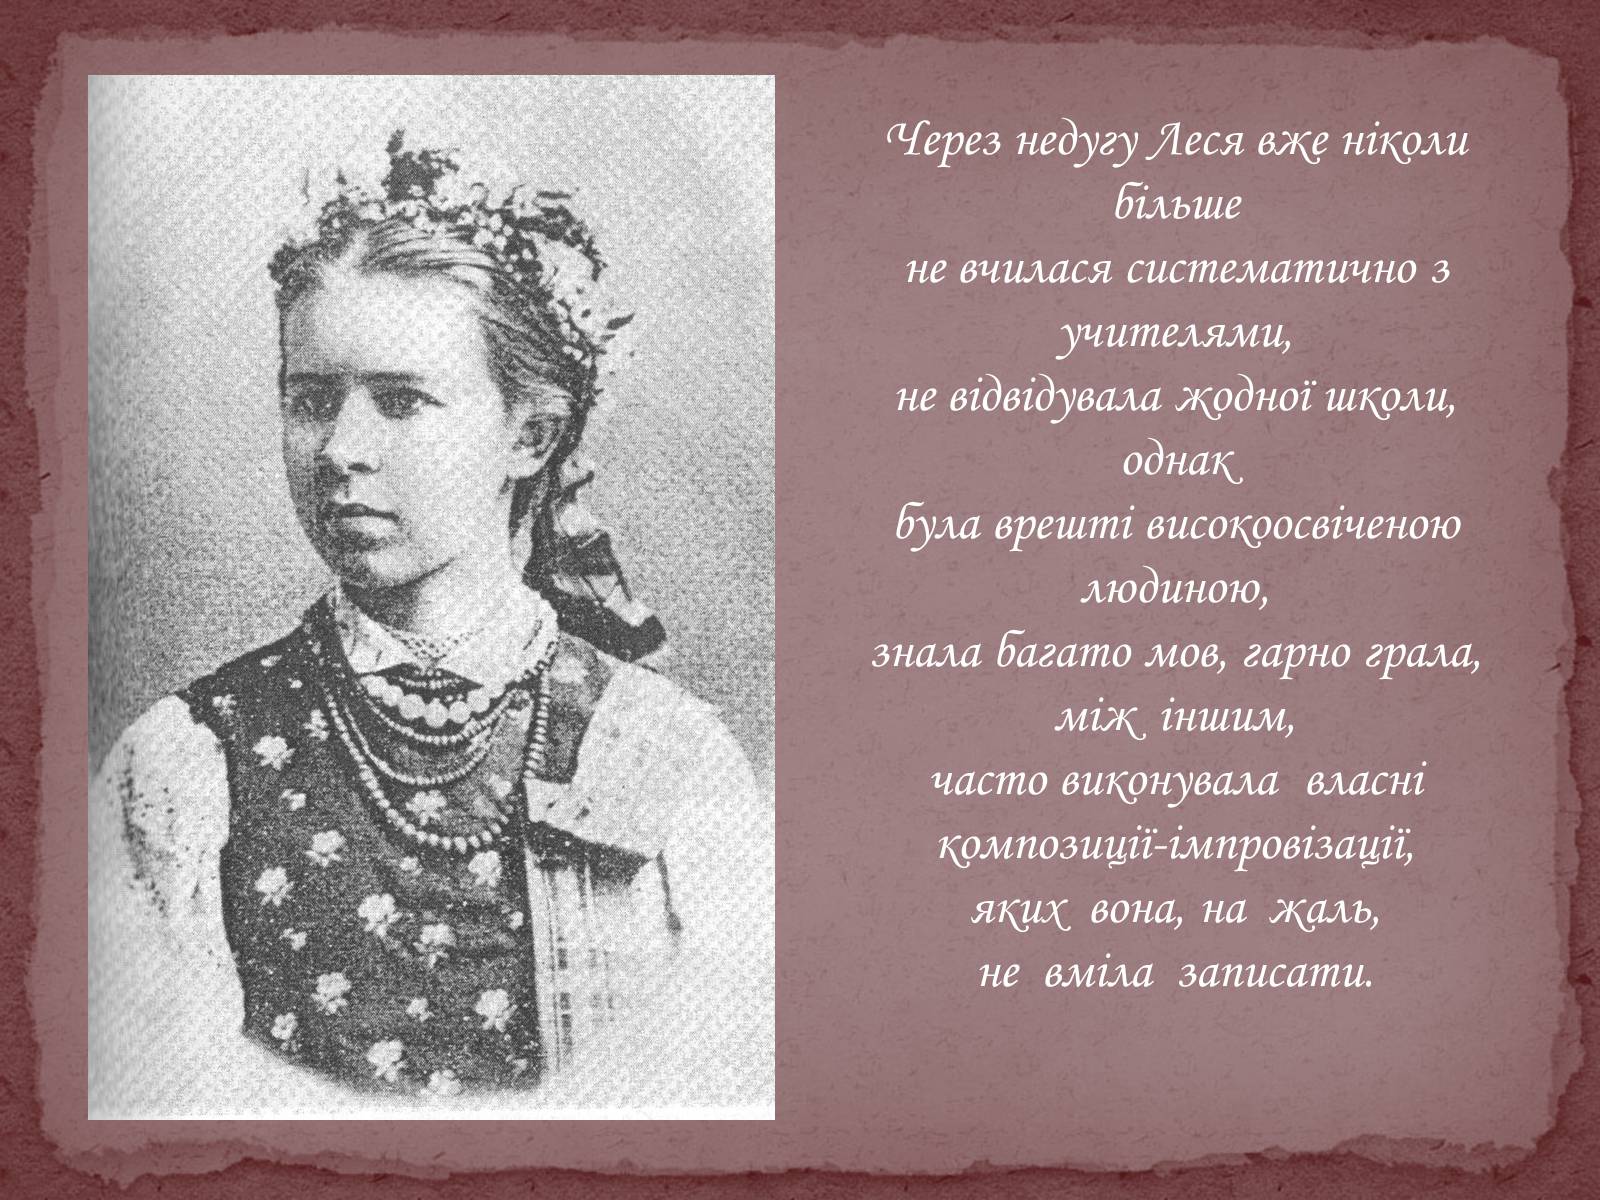 Через недугу Леся вже ніколи
більше
не вчилася систематично з
учителями,
не відвідувала жодної школи,
однак
була врешті високоосвіченою
людиною,
знала багато мов, гарно грала,
між іншим,
часто виконувала власні
композиції-імпровізації,
яких вона, на жаль,
не вміла записати.